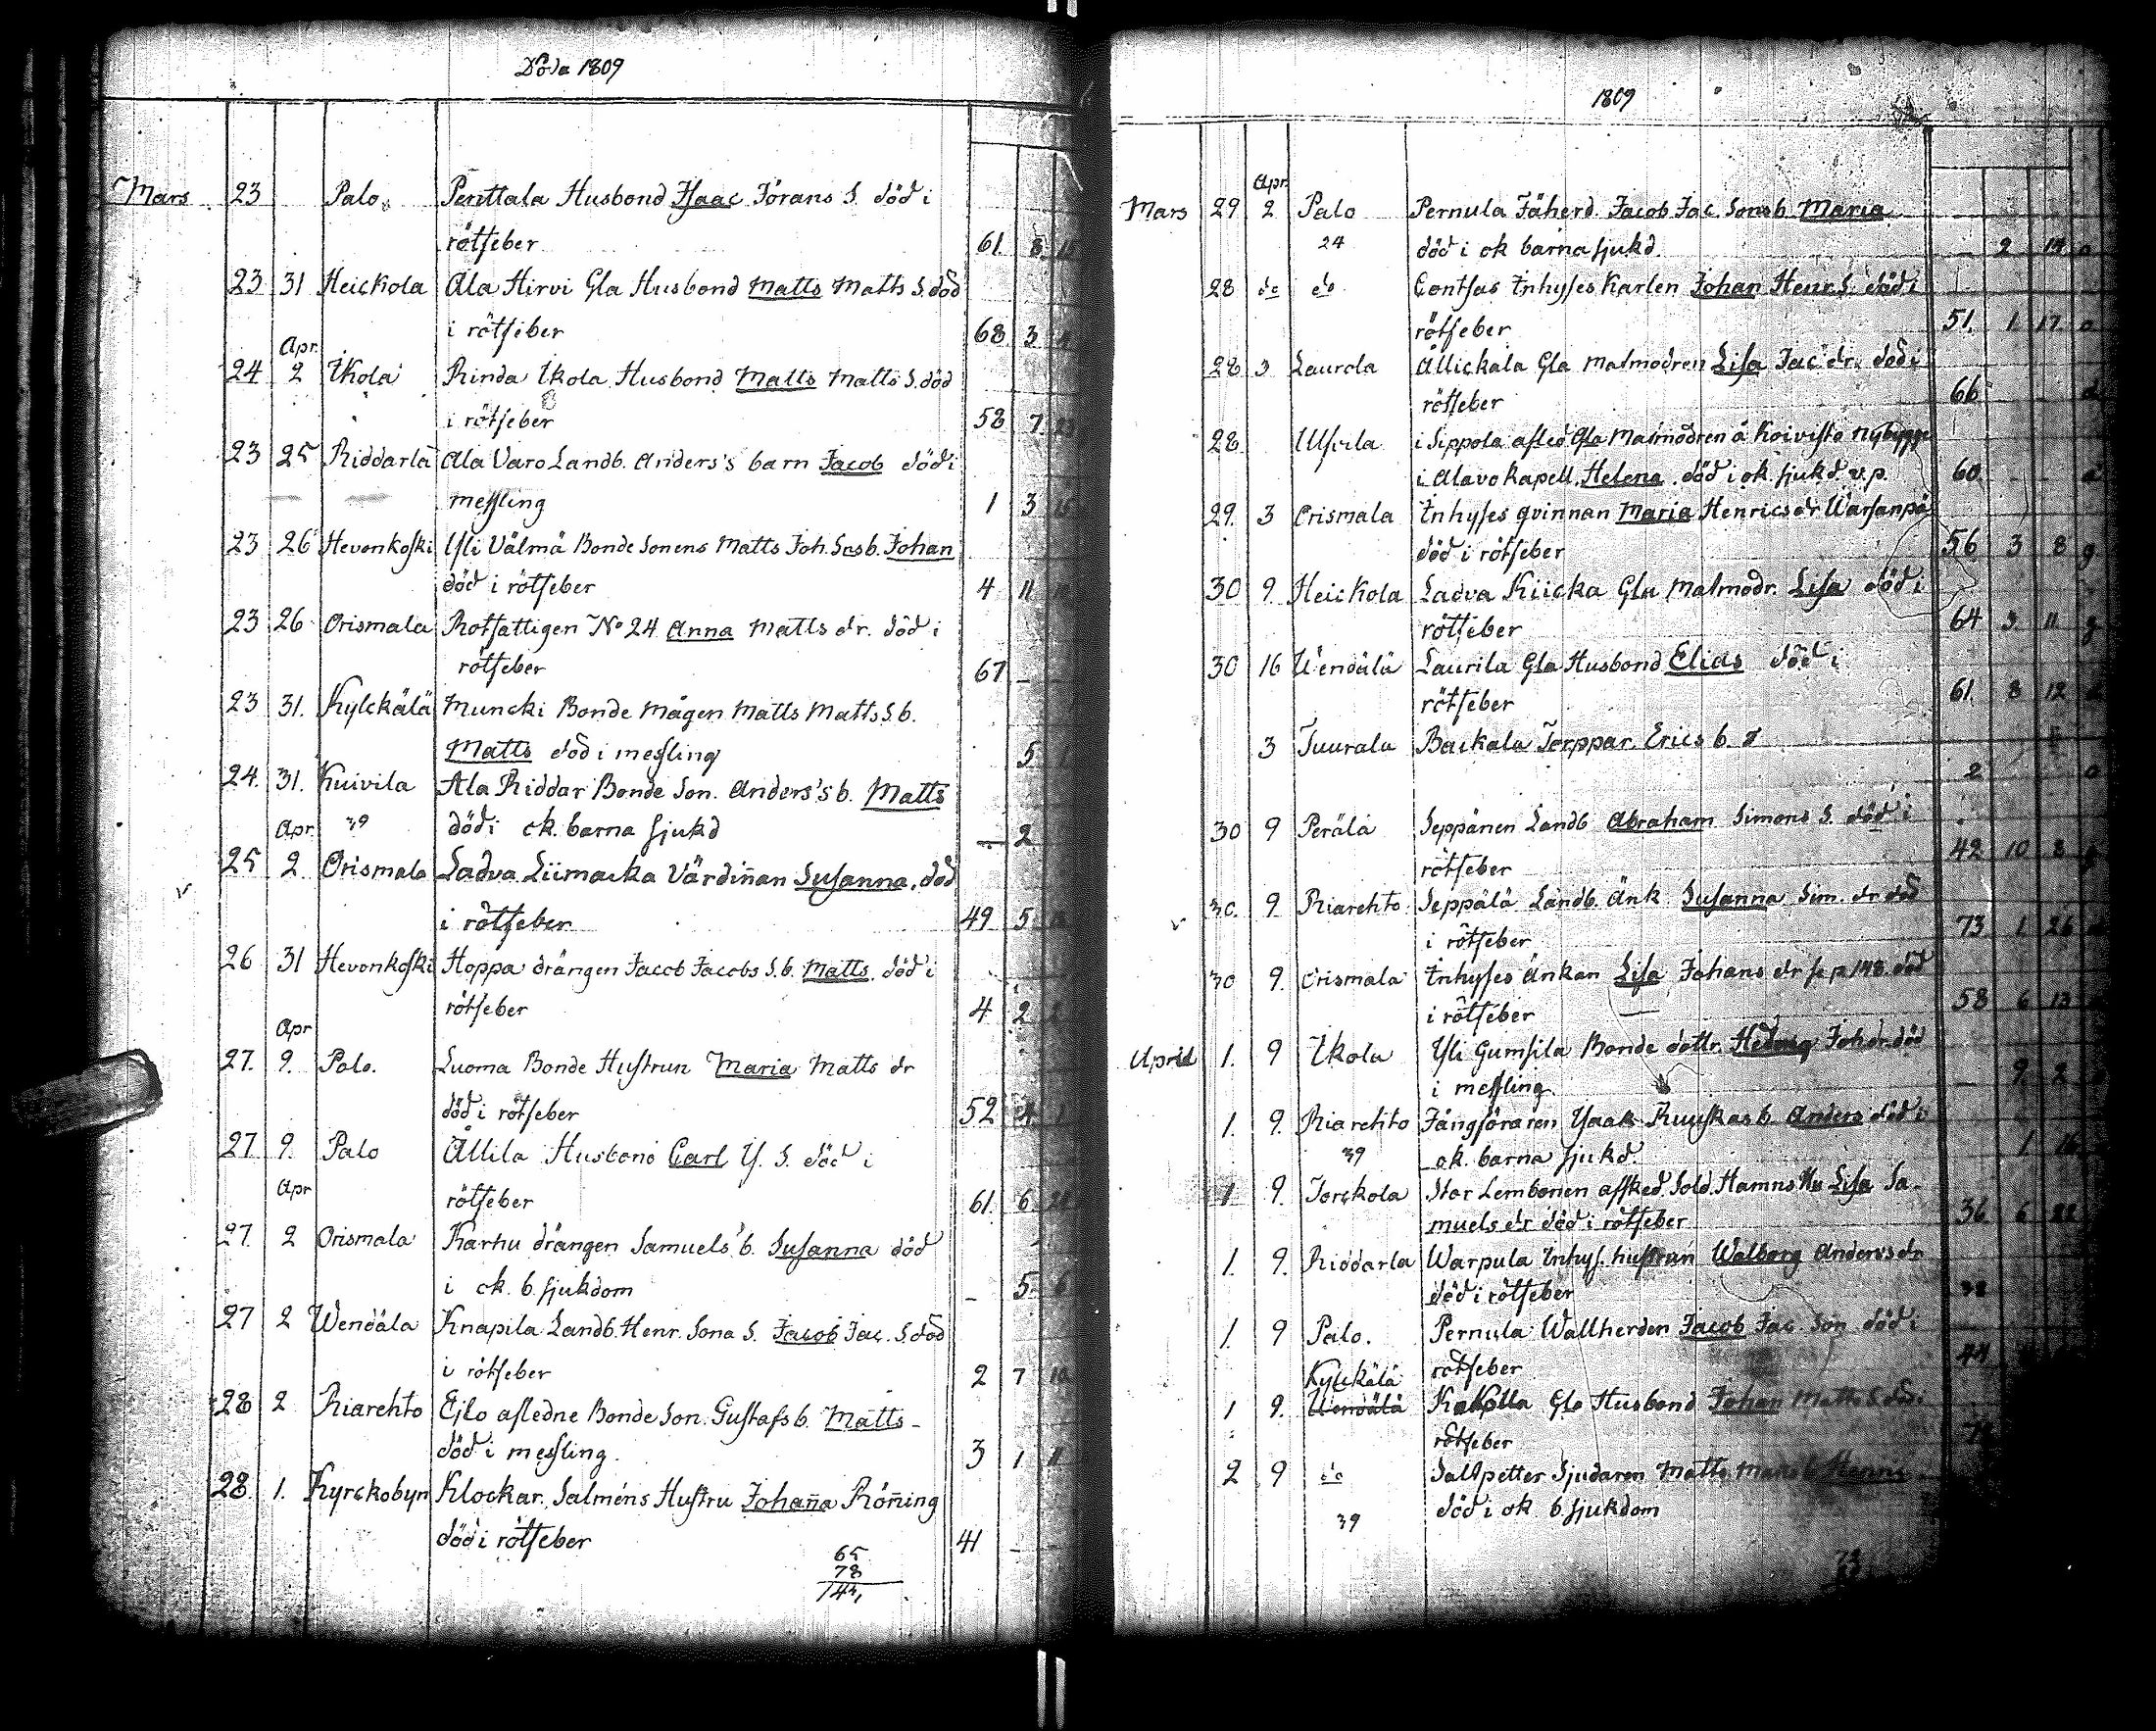 Döda 1809
Mars 23 Palo Penttala Husbond Isaac Jörans S. död i
rötfeber 61. 8.
23 31 Heickola Ala Hirvi Gla Husbond Matts Matts S. död
i rötfeber 68 3
Apr.
24 2 Ikola Rinda Ikola Husbond Matts Matts S. död
i rötfeber 58 7. 23
23 25 Riddarla Ala Varo Landb. Anders's barn Jacob död i
messling 1 3 15
23 26 Hevonkoski Yli Välmä Bonde Sonens Matts Joh. Sos b. Johan
död i rötfeber 4 11
23 26 Orismala Rotfattigen No 24 Anna Matts dr. död i
rötfeber 67 –
23 31. Kylckälä Muncki Bonde Mågen Matts Matts S. b.
Matts död i messling 5
24. 31. Kuivila Ala Riddar Bonde Son. Anders's b. Matts
Apr. 39 död i ok. barna sjukd – 2
25 2 Orismala Ladva Liimacka Värdin̄an Susanna. död
i rötfeber 49 5
26 31 Hevonkoski Hoppa drängen Jacob Jacobs S. b. Matts. död i
rötfeber 4 2
Apr
27. 9. Palo. Luoma Bonde Hustrun Maria Matts dr
död i rötfeber 52 4
27 9. Palo Ällila Husbond Carl Y. S. död i
Apr rötfeber 61. 6
27. 2 Orismala Karhu drängen Samuels' b. Susanna död
i ok. b. sjukdom – 5 6
27 2 Wendäla Knapila Landb. Henr. Sons S. Jacob Jac. S. död
i rötfeber 2 7 10
28 2 Riarehto Ejlo afledne Bonde Son. Gustafs b. Matts –
död i messling. 3 1 11
28. 1. Kyrckobyn Klockar. Salméns Hustru Johan̄a Rön̄ing
död i rötfeber 41 –
65
78
143,
1809
Apr.
Mars 29 2 Palo Pernula Fäherd. Jacob Jac. Sons b. Maria
24 död i ok barna sjukd. – 2 14
28 do do Contsas Inhyses Karlen Johan Henr. S. död i
rötfeber 51. 1 17.
28 3 Laurola Ällickala Gla Matmodren Lisa Jac dr. död i
rötfeber 66
28 Ulvila i Seppola afled Gla Matmodren å Koivisto Nybygge
i Alavo Kapell. Helena. död i ok. sjukd. v. p. 60 – –
29. 3 Orismala Inhyses qvinnan Maria Henrics dr Warsanpä
död i rötfeber 56 3 8 g
30 9. Heickola Ladva Kiicka Gla Matmodr. Lisa död i
rötfeber 64 3 11 g
30 16 Wendälä Laurila Gla Husbond Elias död i
rötfeber 61. 8 12
3 Tuurala Backala Torppar. Erics b.
2
30 9 Perälä Seppänen Landb Abraham Simons S. död i
rötfeber 42 10 8
30. 9. Riarehto Seppälä Landb. Änk Susanna Sim. dr död
i rötfeber 73 1 26
30 9. Orismala Inhyses Änkan Lisa Johans dr se p. 148. död
i rötfeber 58 6 13
April 1. 9 Ikola Yli Gumsila Bonde dottr. Hedvig Joh dr död
i messling. – 9. 2
1. 9. Riarehto Fångföraren Ysaak Ruuskas b. Anders död i
39 ok. barna sjukd. 1 16
1 9. Torckola Stor Lembonen affked. Sold. Hamns Hu Lisa Sa-
muels dr död i rötfeber 36 6 22
1. 9. Riddarla Warpula Inhys. hustrun Walborg Anders dr
död i rötfeber 38
1. 9 Palo. Pernula Wallherden Jacob Jac. Son död i
Kylckälä rötfeber 44
1 9. Wendälä Gla Husbond Johan Matts S. död i
rötfeber
2 9 do Saltpetter Sjudaren Matts b. Henric
död i ok b. sjukdom
39
73